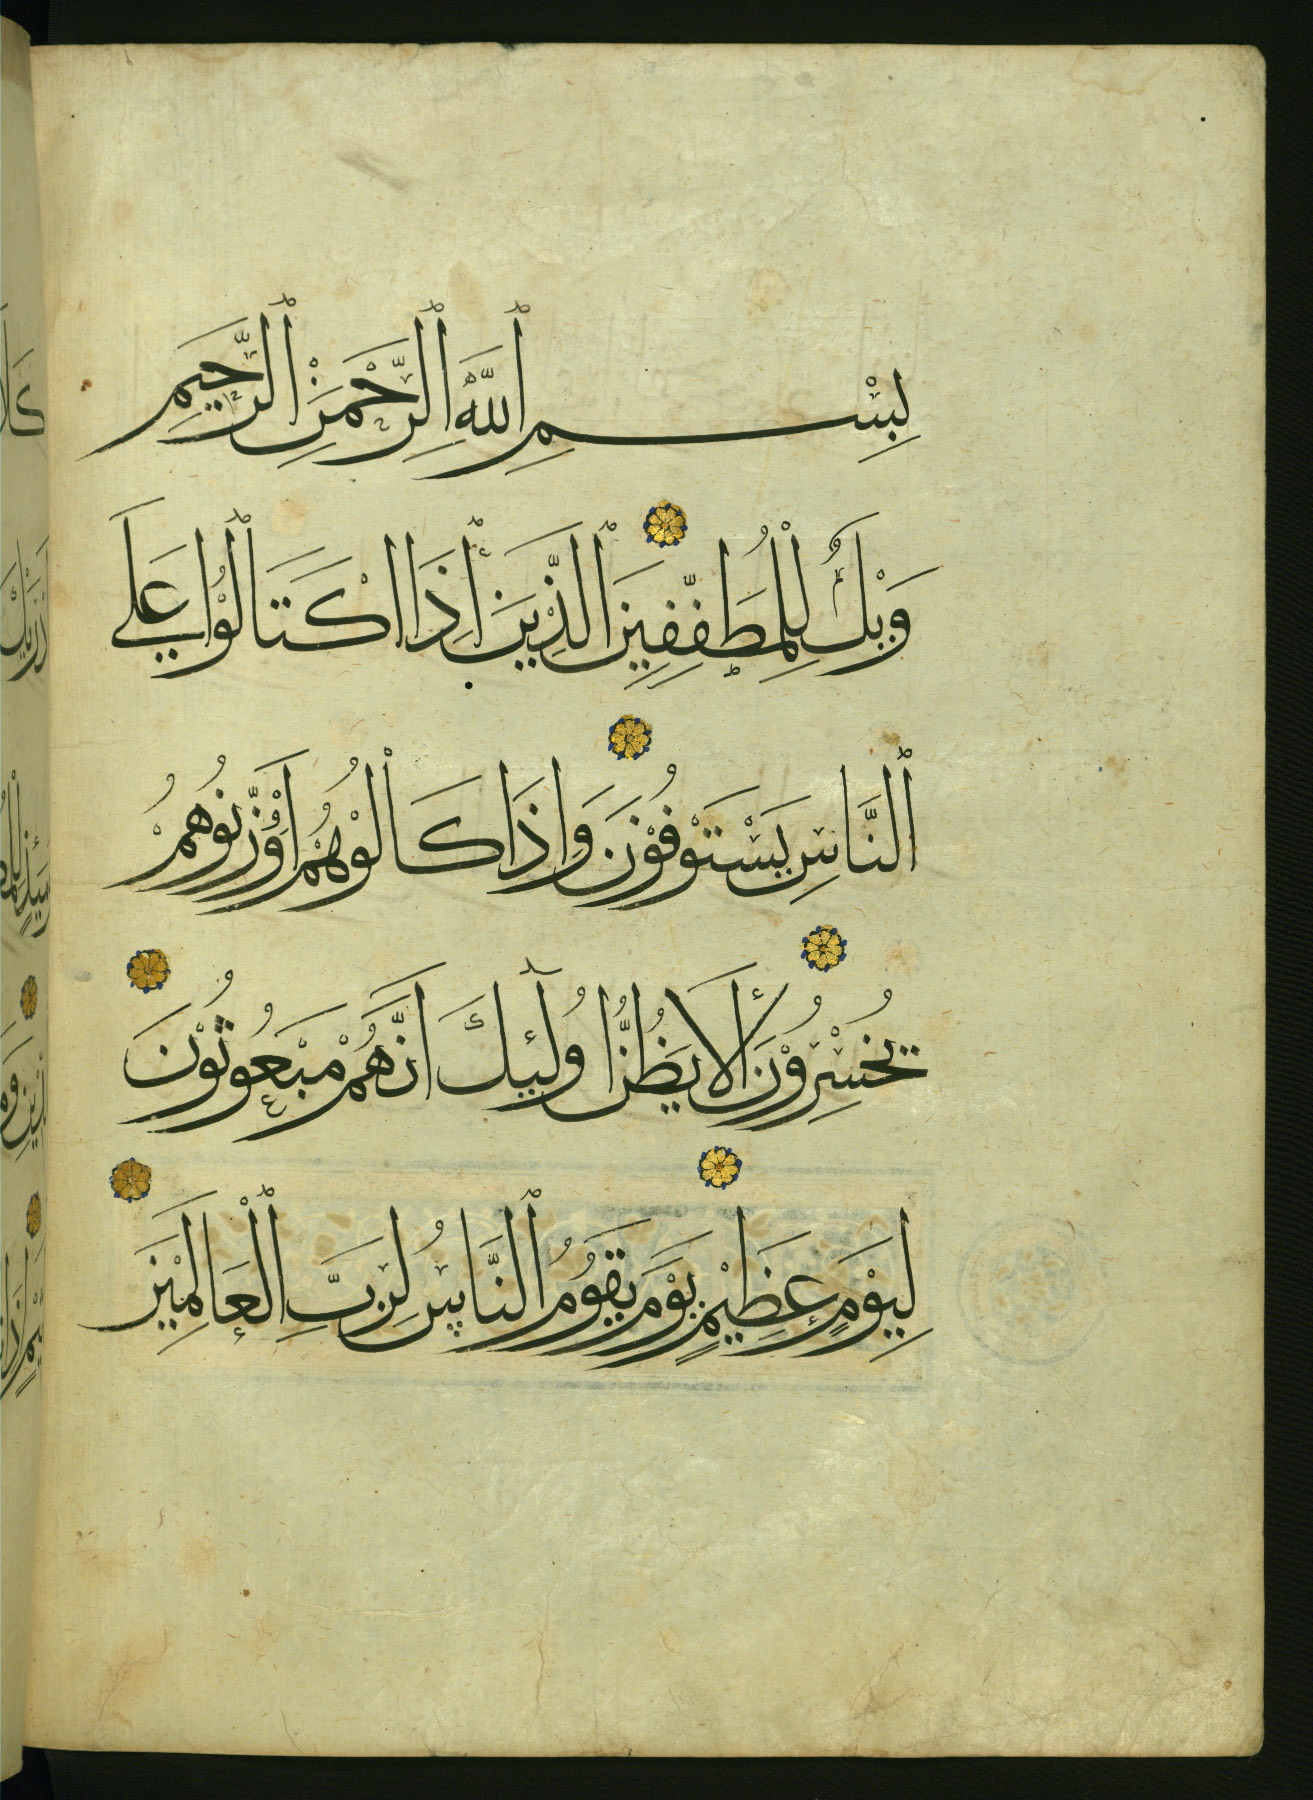 بِسْمِ ٱللَّهِ ٱلرَّحْمَنِ ٱلرَّحِيمِ
وَيْلٌ لِلْمُطَفِّفِينَ ٱلَّذِينَ إِذَا اكْتَالُوْا عَلَى
ٱلنَّاسِ يَسْتَوْفُوْنَ وَإِذَا كَالُوْهُمْ اَوْ وَّزَنُوْهُمْ
يُخْسِرُوْنَ أَلَا يَظُنُّ اُولَٓئِكَ اَنَّهُمْ مَبْعُوثُوْنَ
لِيَوْمٍ عَظِيْمٍ يَوْمَ يَقُوْمُ ٱلنَّاسُ لِرَبِّ ٱلْعَالَمِيْنَ